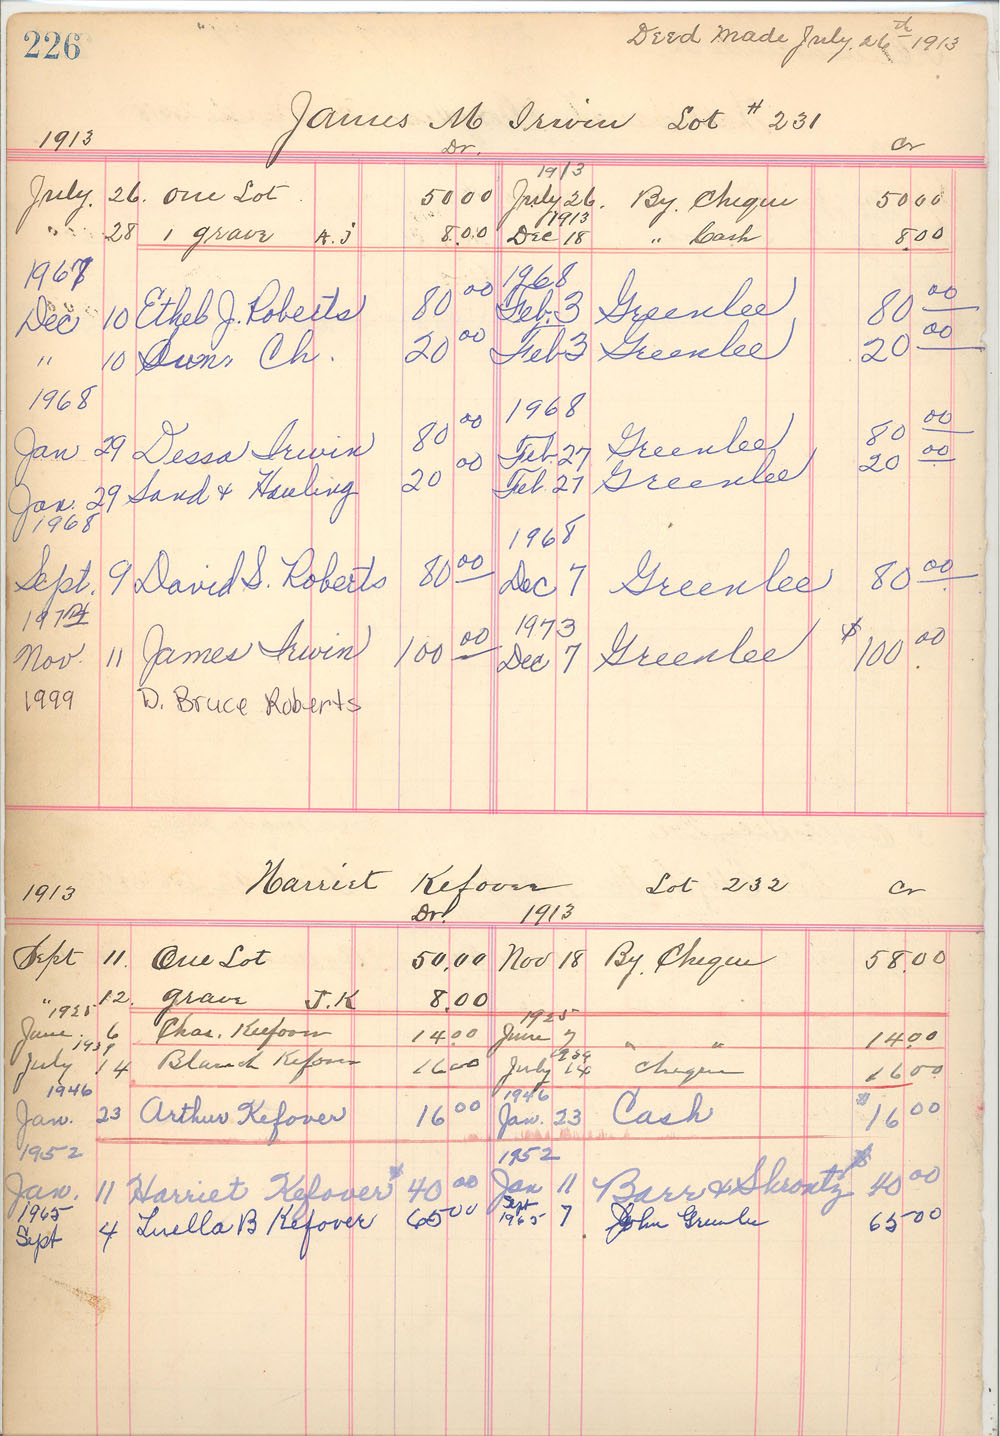 226
Deed Made July 26th 1913
James M Irwin Lot # 231
1913 Dr. Cr
1913
July. 26. One Lot 50 00 July 26. By. Cheque 50 00
1913
" 28 1 grave A. J 8.00 Dec 18 " Cash 8.00
1967 1968
Dec 10 Ethel J. Roberts 80 00 Feb. 3 Greenlee 80 00
" 10 Ch. 20 00 Feb 3 Greenlee 20 00
1968 1968
Jan 29 Dessa Irwin 80 00 Feb. 27 Greenlee 80 00
Jan. 29 Sand & Hauling 20 00 Feb. 27 Greenlee 20 00
1968 1968
Sept. 9 David S. Roberts 80 00 Dec 7 Greenlee 80 00
1973
Nov. 11 James Irwin 100 00 Dec 7 Greenlee $100 00
1999 D. Bruce Roberts
Harriet Kefover Lot 232 Cr
1913 Dr. 1913
Sept 11. One Lot 50.00 Nov 18 By. Cheque 58.00
" 12. grave J. K 8.00
1925 1925
June 6 Chas. Keefover 14.00 June 7 " " 14.00
1939 1939
July 14 Blanch Kefover 16 00 July 14 cheque 16 00
1946 1946
Jan. 23 Arthur Kefover 16 00 Jan. 23 Cash $16 00
1952 1952
Jan. 11 Harriet Kefover $40 00 Jan 11 Barr & Shrontz $40 00
1965 Sept
Sept 4 Luella B Kefover 65 00 1965 7 John Greenlee 65 00